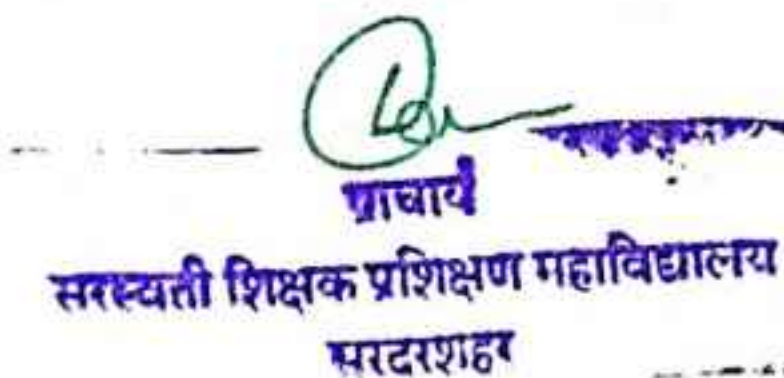 प्राचार्य
सरस्वती शिक्षक प्रशिक्षण महाविद्यालय
सरदारशहर